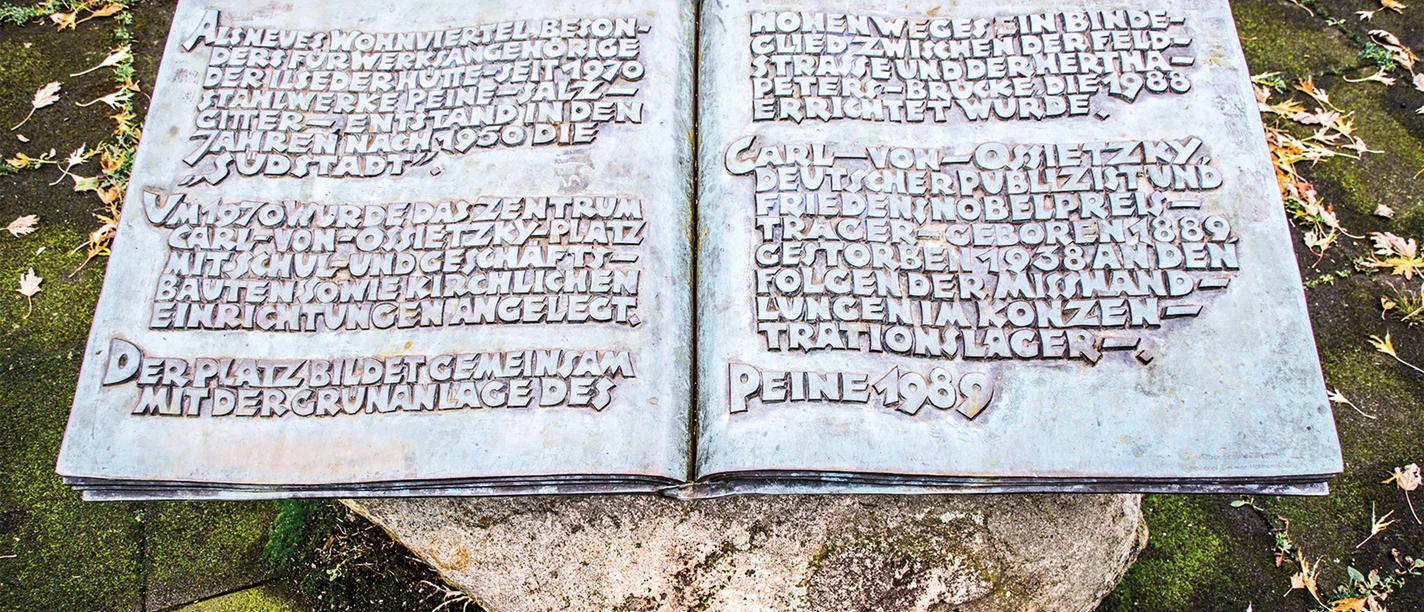 ALS NEUES WOHNVIERTEL, BESON-
DERS FÜR WERKSANGEHÖRIGE
DER ILSEDER HÜTTE – SEIT 1970
STAHLWERKE PEINE – SALZ–
GITTER –, ENTSTAND IN DEN
JAHREN NACH 1950 DIE
„SÜDSTADT“.
UM 1970 WURDE DAS ZENTRUM
CARL–VON–OSSIETZKY–PLATZ
MIT SCHUL– UND GESCHÄFTS–
BAUTEN SOWIE KIRCHLICHEN
EINRICHTUNGEN ANGELEGT.
DER PLATZ BILDET GEMEINSAM
MIT DER GRÜNANLAGE DES
HOHEN WEGES EIN BINDE–
GLIED ZWISCHEN DER FELD–
STRASSE UND DER HERTHA–
PETERS–BRÜCKE, DIE 1988
ERRICHTET WURDE.
CARL–VON–OSSIETZKY,
DEUTSCHER PUBLIZIST UND
FRIEDENSNOBELPREIS–
TRÄGER – GEBOREN 1889,
GESTORBEN 1938 AN DEN
FOLGEN DER MISSHAND–
LUNGEN IM KONZEN–
TRATIONSLAGER –.
PEINE 1989